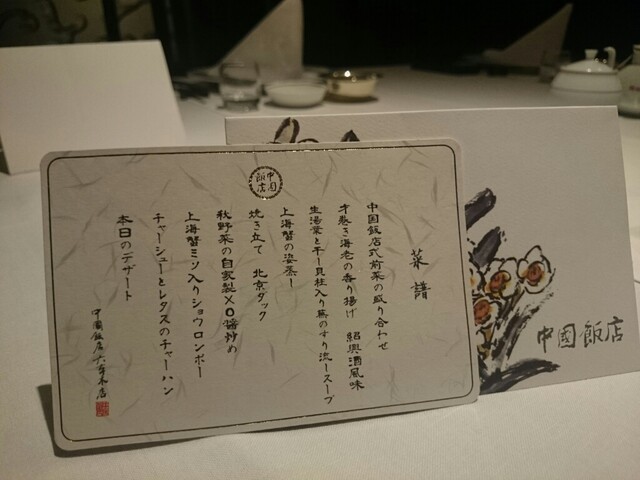 中国飯店
菜譜
中国飯店式前菜の盛り合わせ
才巻き海老の香り揚げ 紹興酒風味
生湯葉と干し貝柱入り蕪のすり流しスープ
上海蟹の姿蒸し
焼き立て 北京ダック
秋野菜の自家製XO醤炒め
上海蟹ミソ入りショウロンポー
チャーシューとレタスのチャーハン
本日のデザート
中國飯店六本木店
中國飯店